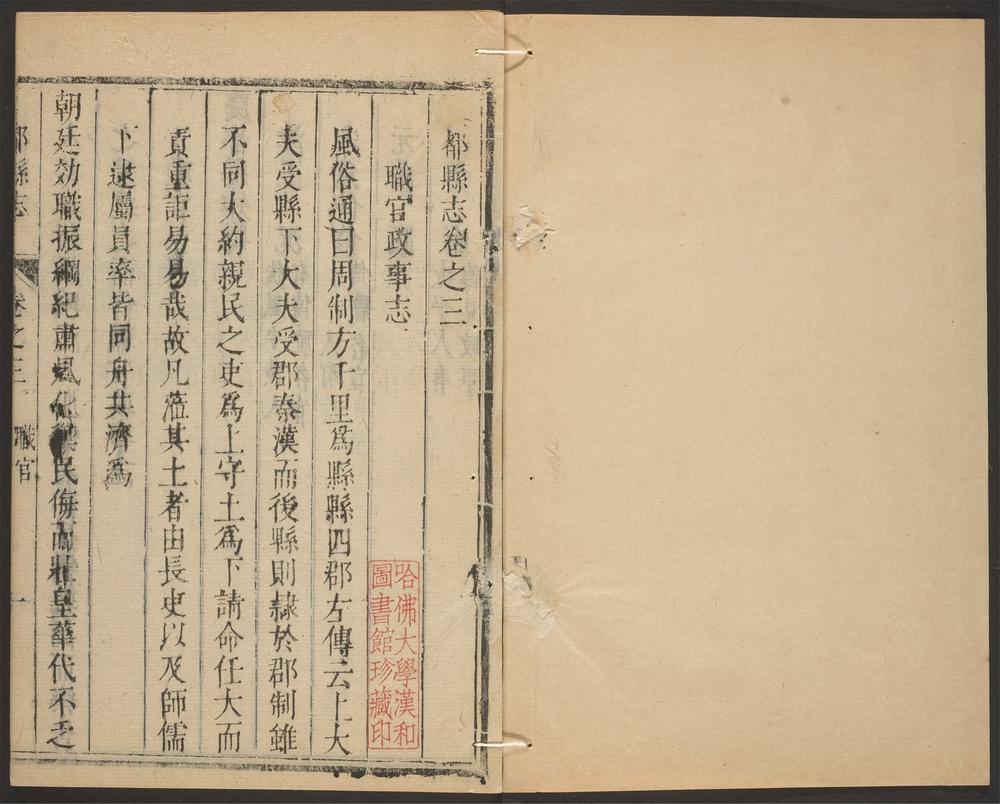 都縣志卷之三
職官政事志
風俗通曰周制方千里爲縣縣四郡左傳云上大
夫受縣下大夫受郡秦漢而後縣則隷於郡制雖
不同大約親民之吏爲上守土爲下請命任大而
責重詎易易哉故凡蒞其土者由長吏以及師儒
下逮屬員率皆同舟共濟爲
朝廷効職振綱紀肅風化禦民侮而壯皇華代不乏
縣志 卷之三 職官 一
哈佛大學漢和
圖書館珍藏印